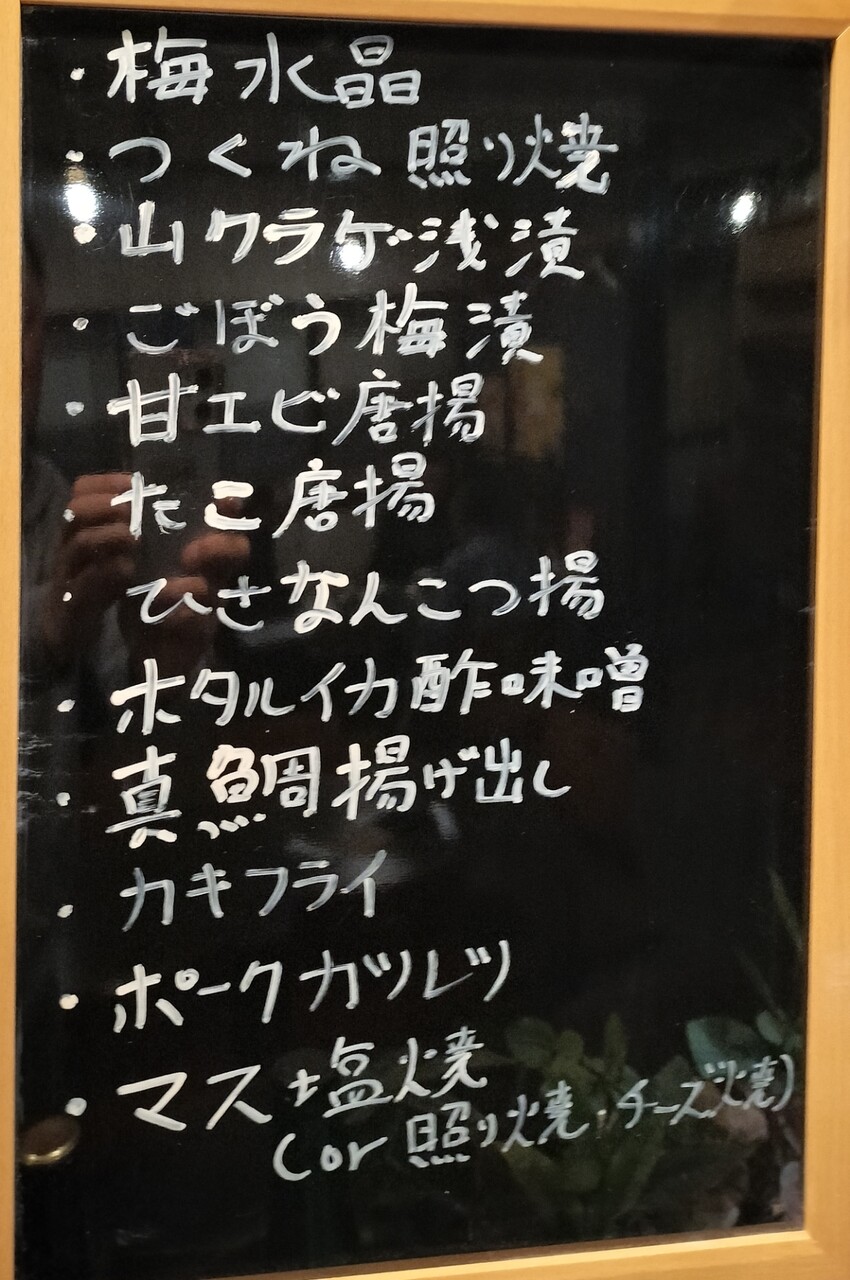 ・梅水晶
・つくね照り焼
・山クラゲ浅漬
・ごぼう梅漬
・甘エビ唐揚
・たこ唐揚
・ひざなんこつ揚
・ホタルイカ酢味噌
・真鯛揚げ出し
・カキフライ
・ポークカツレツ
・マス塩焼
(or 照り焼・チーズ焼)